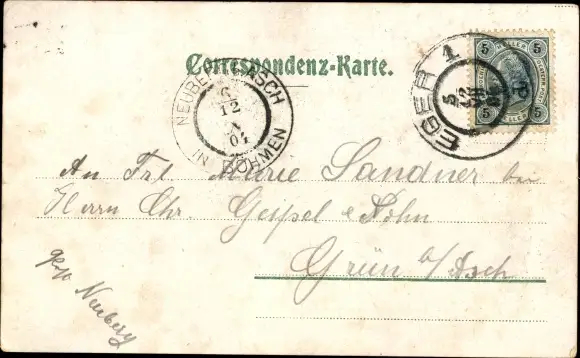 Correspondenz-Karte.
5 HELLER 5
EGER 1
5 12
NEUBERG b. ASCH
6 12
04
IN BÖHMEN
An Frl Marie Sandner bei
Herrn Chr. Geipel & Sohn
Grün b/Asch
Neuberg